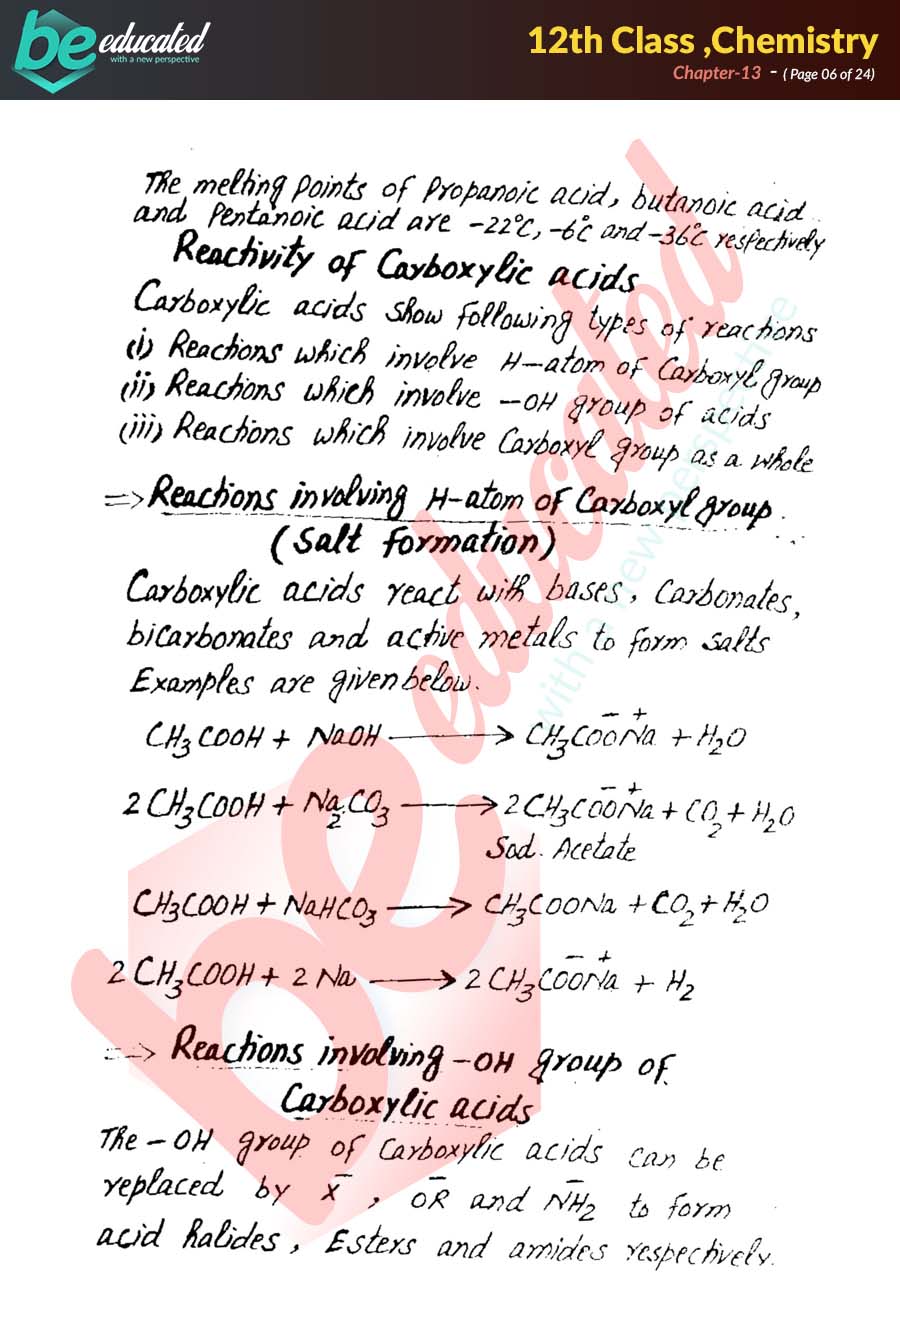 be educated
with a new perspective
12th Class ,Chemistry
Chapter-13 - ( Page 06 of 24)
The melting points of Propanoic acid, butanoic acid
and Pentanoic acid are -22°C, -6°C and -36°C respectively
Reactivity of Carboxylic acids
Carboxylic acids show following types of reactions
(i) Reactions which involve H-atom of Carboxyl group
(ii) Reactions which involve -OH group of acids
(iii) Reactions which involve Carboxyl group as a whole
=> Reactions involving H-atom of Carboxyl group.
(Salt formation)
Carboxylic acids react with bases, Carbonates,
bicarbonates and active metals to form salts
Examples are given below.
CH₃COOH + NaOH ⟶ CH₃COO⁻Na⁺ + H₂O
2CH₃COOH + Na₂CO₃ ⟶ 2CH₃COO⁻Na⁺ + CO₂ + H₂O
Sod. Acetate
CH₃COOH + NaHCO₃ ⟶ CH₃COONa + CO₂ + H₂O
2CH₃COOH + 2Na ⟶ 2CH₃COO⁻Na⁺ + H₂
=> Reactions involving -OH group of
Carboxylic acids
The -OH group of Carboxylic acids can be
replaced by X⁻, OR⁻ and NH₂⁻ to form
acid halides, Esters and amides respectively.
be educated
with a new perspective